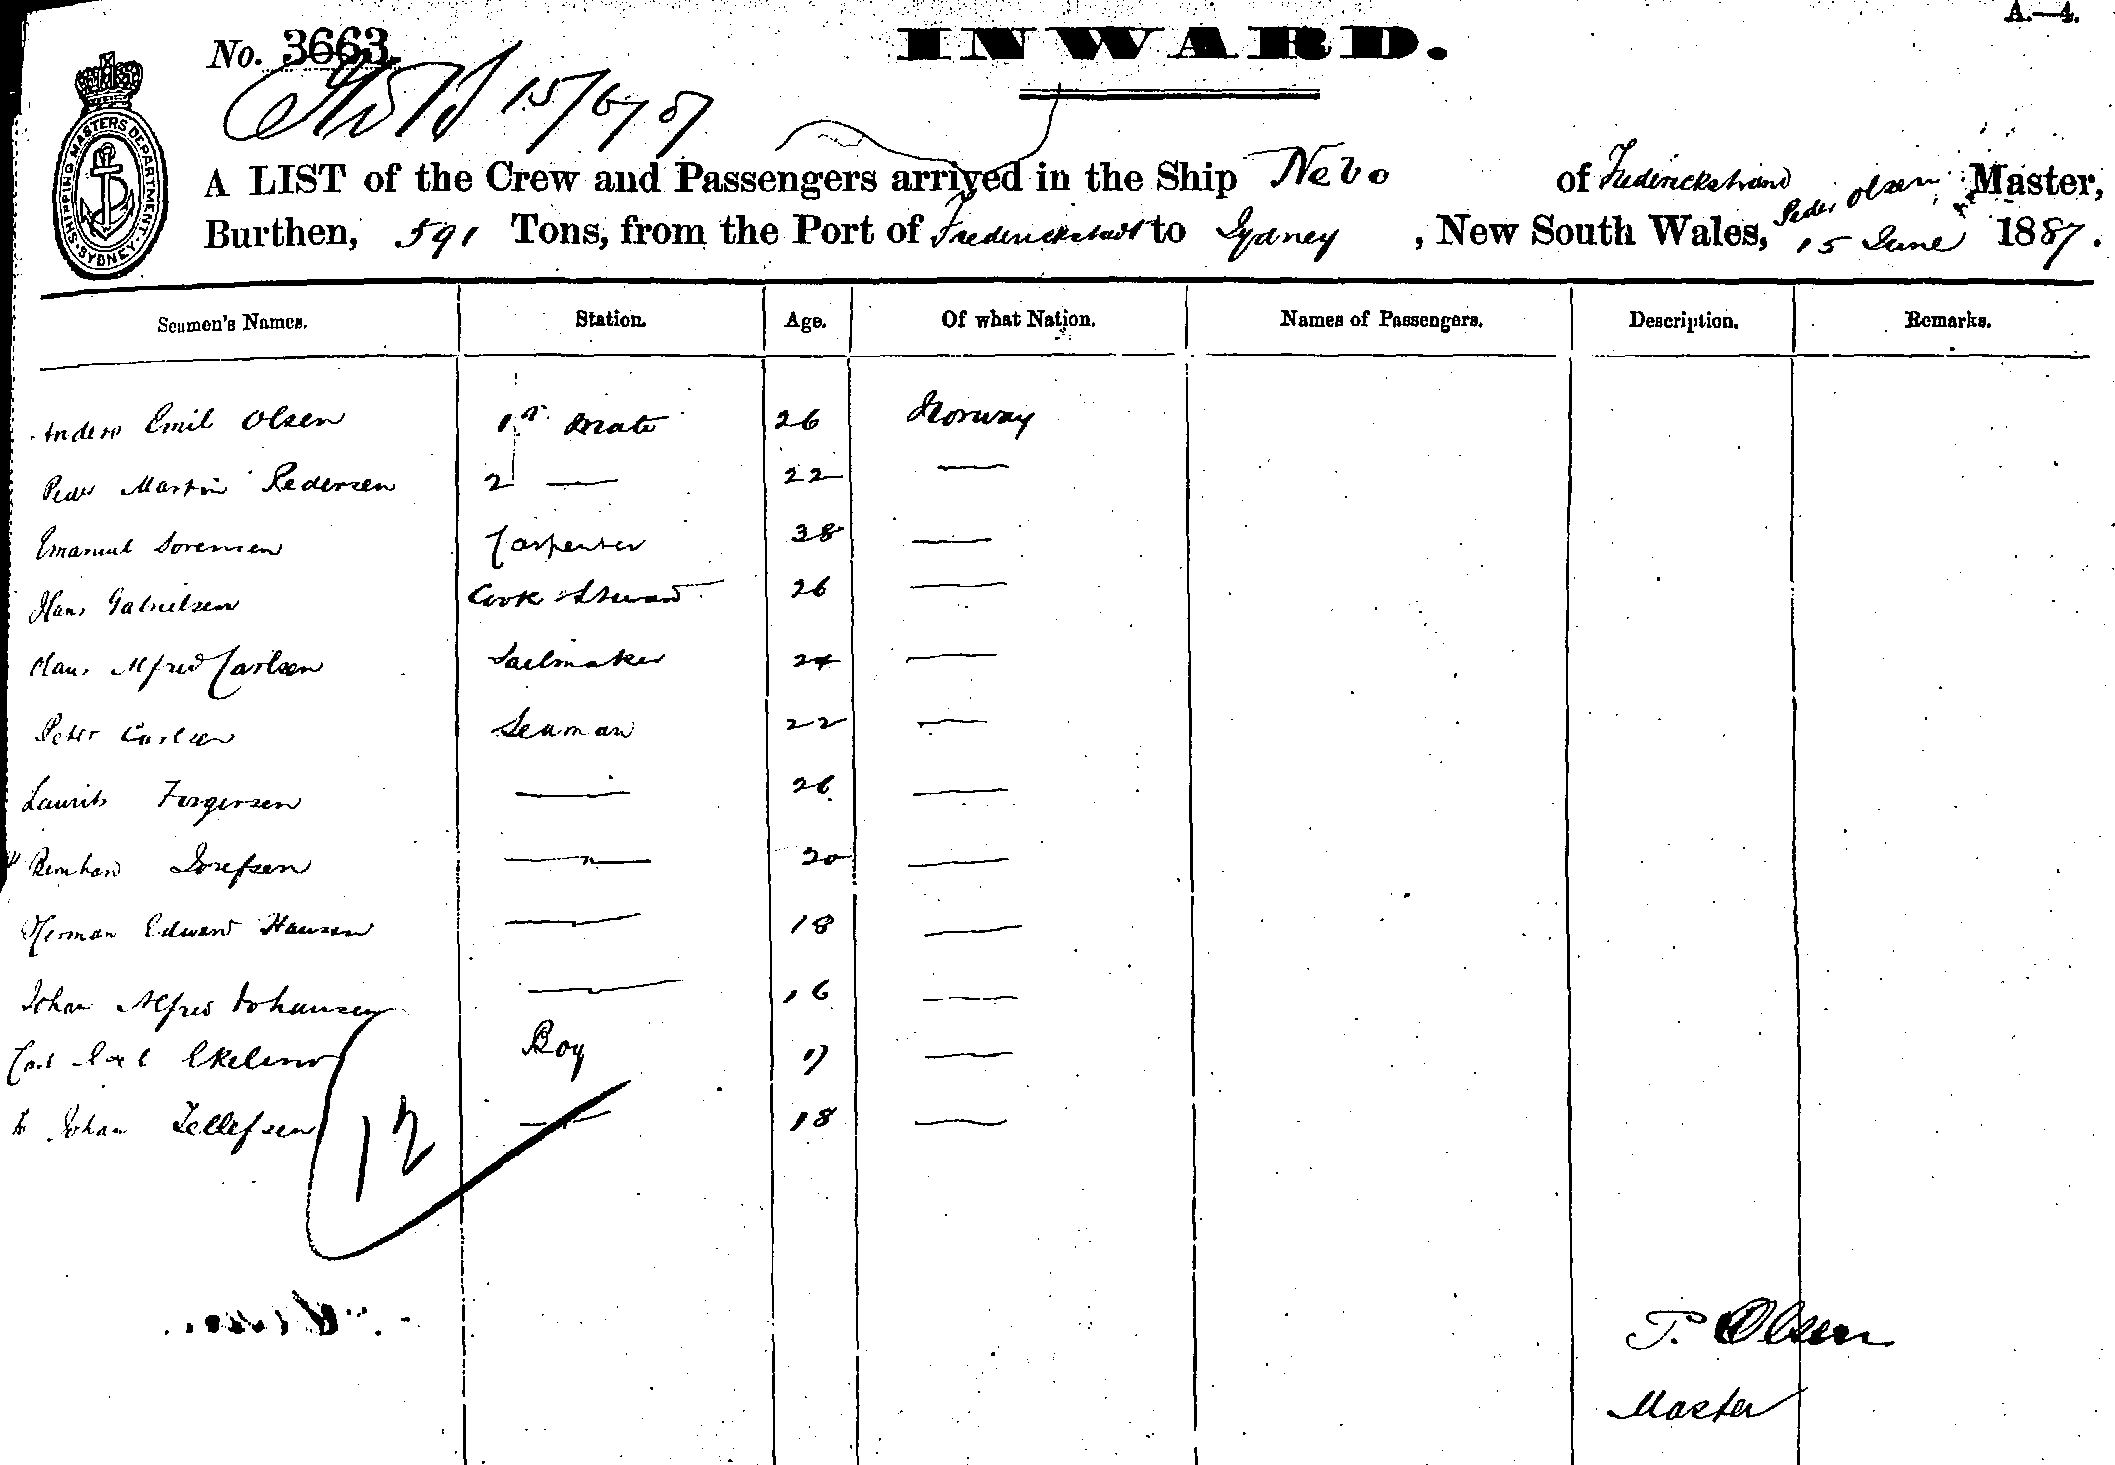 A.—4.
No. 3663
INWARD.
15/6/87
SHIPPING MASTERS DEPARTMENT SYDNEY
A LIST of the Crew and Passengers arrived in the Ship Nebo of Frederickstrand Peder Olsen Master,
Burthen, 591 Tons, from the Port of Frederickstadt to Sydney, New South Wales, 15 June 1887.
Seamen's Names. Station. Age. Of what Nation. Names of Passengers. Description. Remarks.
Anders Emil Olsen 1st Mate 26 Norway
Peder Martin Pedersen 2 — 22 —
Emanuel Sorensen Carpenter 38 —
Hans Gabrielsen Cook & Steward 26 —
Hans Alfred Carlsen Sailmaker 24 —
Peter Carlsen Seaman 22 —
Laurits Torgersen — 26 —
Bernhard Josefsen — 20 —
Herman Edward Hansen — 18 —
Johan Alfred Johansen — 16 —
Carl Axel Ekelund Boy 17 —
Johan Tellefsen — 18 —
12
P. Olsen
Master